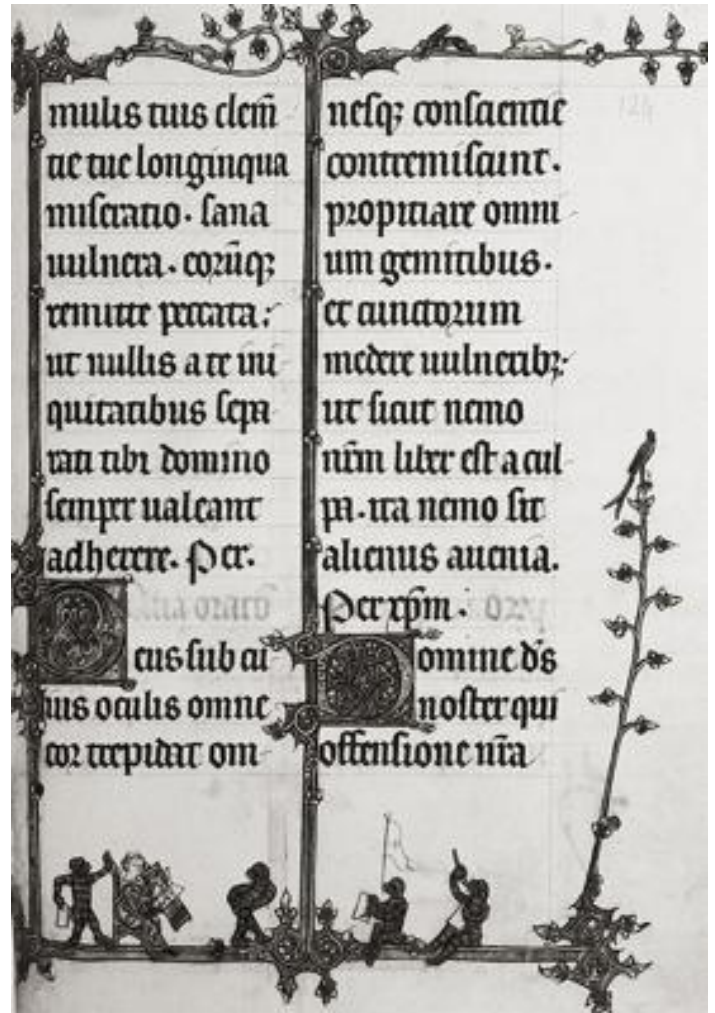 mulis tuis clem̄
tie tue longinqua
miseratio. sana
uulnera. corūqꝫ
remitte peccata:
ut nullis a te ini
quitatibus sepa
rati tibi domino
semper ualeant
adherere. Per.
Alia oratō
Deus sub cu
ius oculis omne
cor trepidat om
nesqꝫ conscientie
contremiscunt.
propitiare omni
um gemitibus.
et cunctorum
medere uulneribꝫ
ut sicut nemo
nr̄m liber est a cul
pa. ita nemo sit
alienus a uenia.
Per xp̄m.
Domine ds̄
noster qui
offensione nr̄a
124